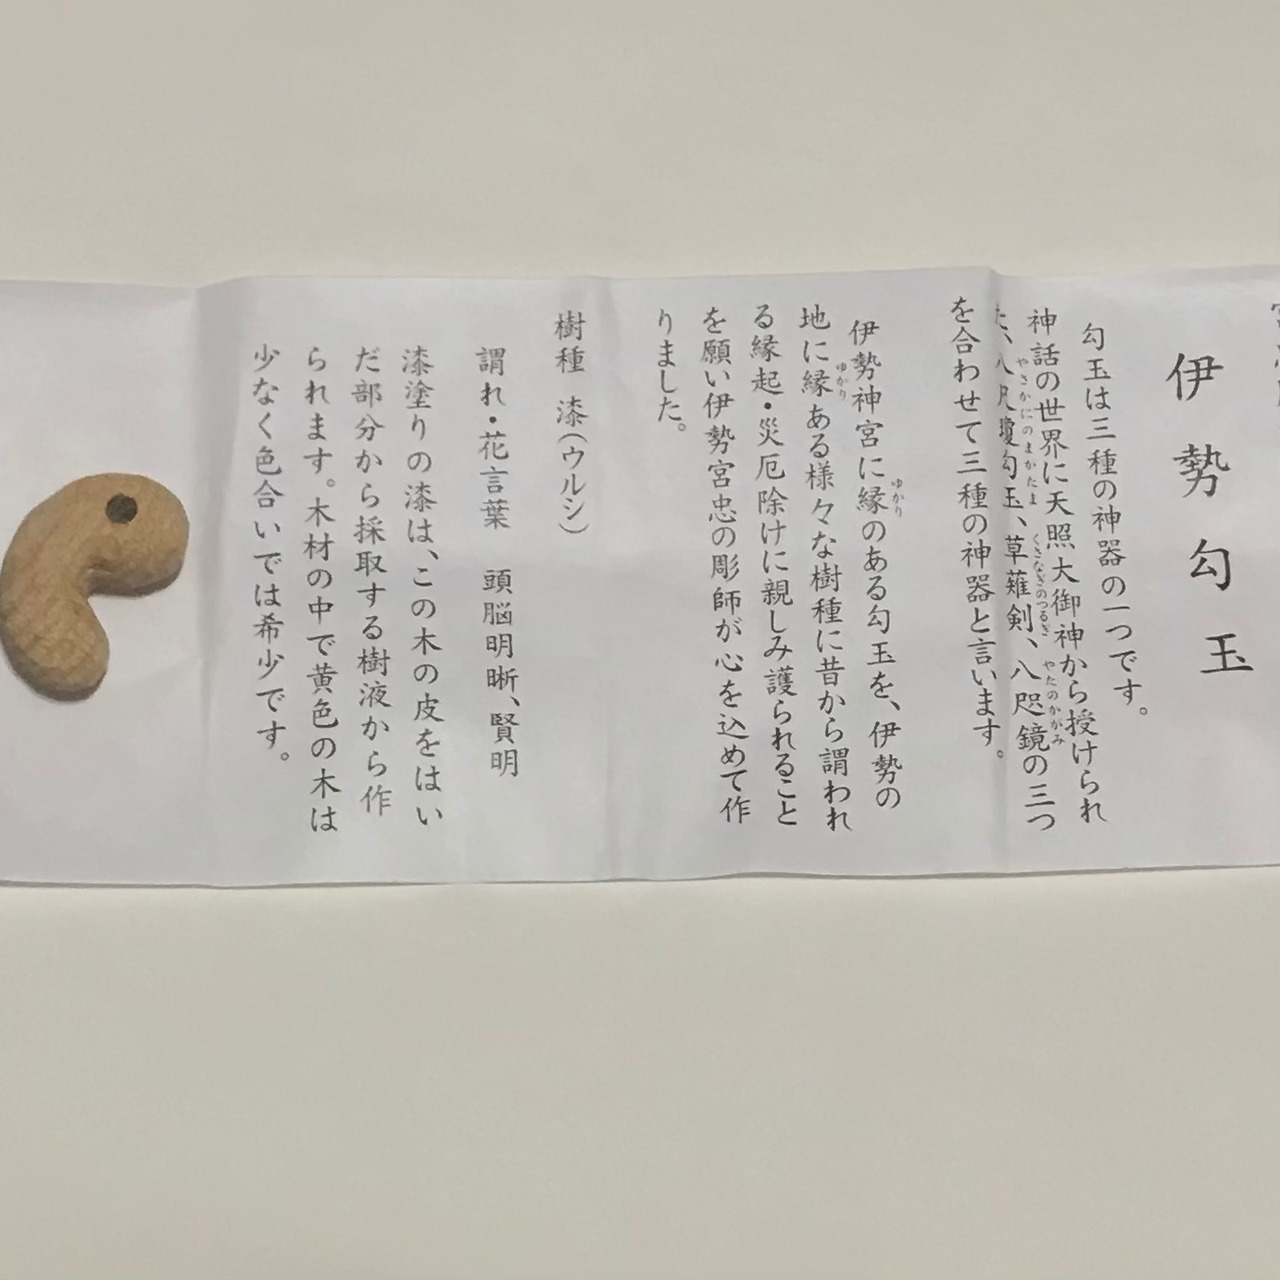 伊勢勾玉
勾玉は三種の神器の一つです。
神話の世界に天照大御神から授けられ
た、八尺瓊勾玉、草薙剣、八咫鏡の三つ
やさかにのまがたま くさなぎのつるぎ やたのかがみ
を合わせて三種の神器と言います。
伊勢神宮に縁のある勾玉を、伊勢の
ゆかり
地に縁ある様々な樹種に昔から謂われ
ゆかり
る縁起・災厄除けに親しみ護られること
を願い伊勢宮忠の彫師が心を込めて作
りました。
樹種 漆(ウルシ)
謂れ・花言葉 頭脳明晰、賢明
漆塗りの漆は、この木の皮をはい
だ部分から採取する樹液から作
られます。木材の中で黄色の木は
少なく色合いでは希少です。